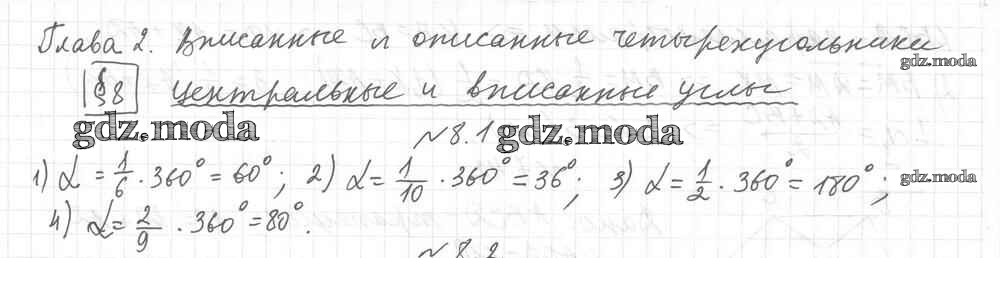 Глава 2. Вписанные и описанные четырехугольники
gdz.moda
§8 Центральные и вписанные углы
gdz.moda №8.1 gdz.moda
1) α = 1/6 · 360° = 60°; 2) α = 1/10 · 360° = 36°; 3) α = 1/2 · 360° = 180°; gdz.moda
4) α = 2/9 · 360° = 80°.
№8.2